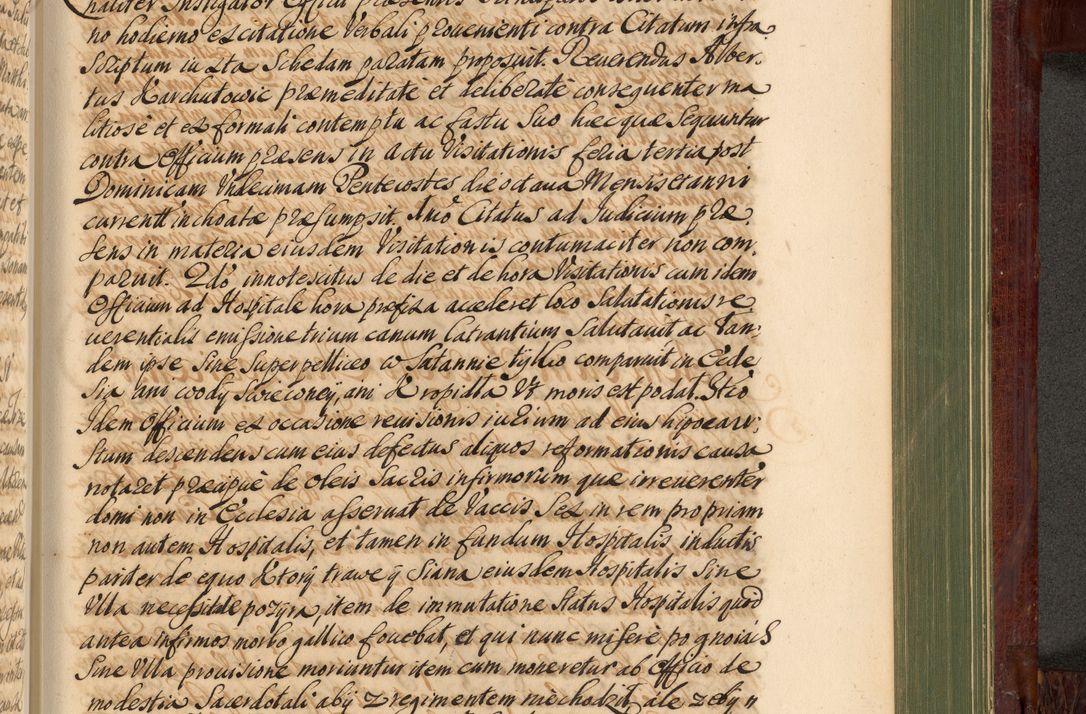 naliter Instigator Officii præsentis
no hodierno ex citatione Verbali provenienti contra Citatum infra
Scriptum iuxta Schedam paratam proposuit. Reuerendus Alber-
tus Karchutowic præmeditatè et deliberatè consequenter ma
litiosè et ex formali contemptu ac fastu Suo hæc quæ Sequuntur
contra Officium præsens in Actu Visitationis feria tertia post
Dominicam Vndecimam Pentecostes die octaua Mensis et anni
currentt inchoatæ præsumpsit. Imo Citatus ad Iudicium præ-
sens in materia eiusdem Visitationis contumaciter non com-
paruit. 2do innotesutus de die et de hora Visitationis cum idem
Officium ad Hospitale hora præfixa accederet loco Salutationis re
uerentialis emissione trium canum latrantium Salutauit ac Tan-
dem ipse Sine Superpelliceo w Sutannie tylko comparuit in Eccle
sia ani wody Swieconeÿ, ani Kropidła Vt moris est podał. 3tio
Idem Officium ex occasione reuisionis iurium ad eius hipocau-
stum descendens cum eius defectus aliquos reformationis causa
notaret præcipuè de Oleis Sacris infirmorum quæ irreuerenter
domi non in Ecclesia asseruat de Vaccis Sex in rem propriam
non autem Hospitalis, et tamen in fundum Hospitalis inductis
pariter de equo Ktorÿ trawe ÿ Siana eiusdem Hospitalis Sine
Vlla necessitate pozyra, item de immutatione Status Hospitalis quod
antea infirmos morbo gallico fouebat, et qui nunc miserè po gnoiaS
Sine Vlla prouisione moriuntur item cum moneretur ab Officio de
modestia Sacerdotali abÿ z regimentem niechodził ale zebÿ n